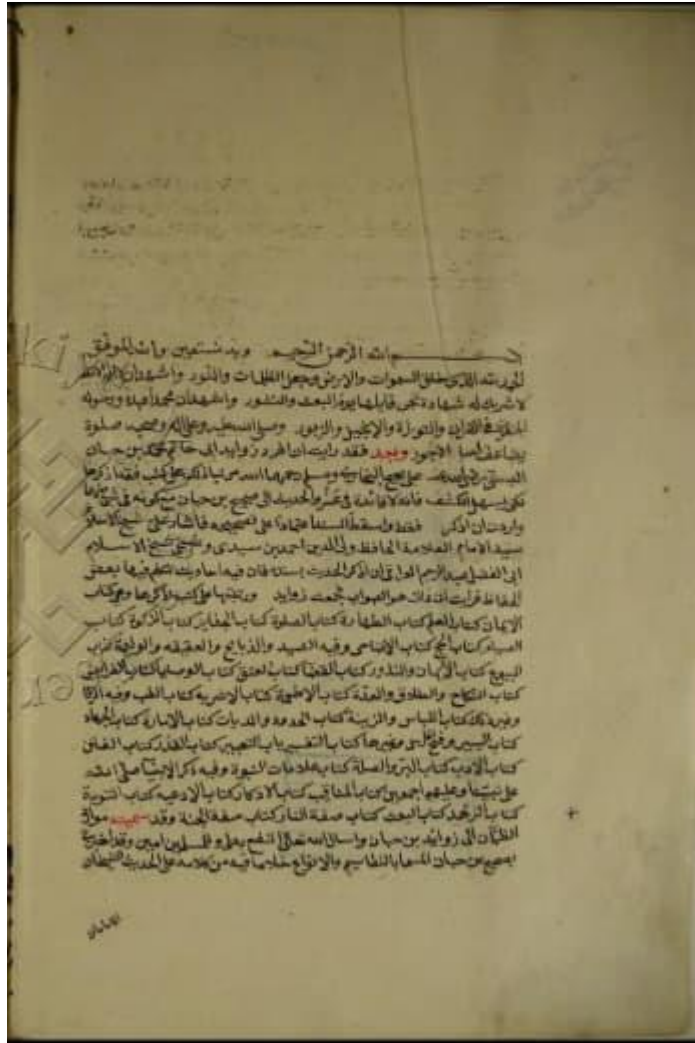 بسم الله الرحمن الرحيم وبه نستعين والله الموفق
الحمد لله الذي خلق السموات والارض وجعل الظلمات والنور واشهد ان لا اله الا الله
لا شريك له شهادة تنجي قايلها يوم البعث والنشور واشهد ان محمدا عبده ورسوله
المنعوت في القران والتوراة والانجيل والزبور وصلى الله عليه وعلى اله وصحبه صلوة
يضاعف لصاحبها الاجور وبعد فقد رايت ان افرد زوايد ابي حاتم محمد بن حبان
البستي رضي الله عنه على صحيح البخاري ومسلم رحمهما الله مرتبا ذلك على كتب فقه اذكرها
لكي يسهل الكشف فانه لا فائدة في عزو الحديث الى صحيح بن حبان مع كونه في
واردت ان اذكر فقط واسقط السند اعتمادا على تصحيحه فاشار علي شيخ الاسلام
سيدي الامام العلامة الحافظ ولي الدين احمد بن سيدي وشيخي شيخ الاسلام
ابي الفضل عبد الرحيم العراقي ان اذكر الحديث بسنده فان فيه احاديث تكلم فيها بعض
الحفاظ فرايت ان ذلك هو الصواب فجمعت زوايد ورتبتها على كتب اذكرها وهي كتاب
الايمان كتاب العلم كتاب الطهارة كتاب الصلوة كتاب الجنايز كتاب الزكوة كتاب
الصيام كتاب الحج كتاب الاضاحي وفيه الصيد والذبايح والعقيقه والوليمة كتاب
البيوع كتاب الايمان والنذور كتاب القضا كتاب العتق كتاب الوصايا كتاب الفرايض
كتاب النكاح والطلاق والعدة كتاب الاطعمة كتاب الاشربه كتاب الطب وفيه الرقا
وغير ذلك كتاب اللباس والزينة كتاب الحدود والديات كتاب الامارة كتاب الجهاد
كتاب السير وغيرها كتاب التفسير باب التعبير كتاب القدر كتاب الفتن
كتاب الادب كتاب البر والصلة كتاب علامات النبوة وفيه ذكر الانبيا صلى الله
على نبينا وعليهم اجمعين كتاب المناقب كتاب الاذكار كتاب الادعيه كتاب التوبة
كتاب الزهد كتاب البعث كتاب صفة النار كتاب صفة الجنة وقد سميته موارد
الظمآن الى زوايد بن حبان واسال الله تعالى النفع به لي وللمسلمين امين وقد اخبرنا
بصحيح بن حبان المسما بالتقاسيم والانواع خلا ما فيه من كلامه على الحديث الشيخان